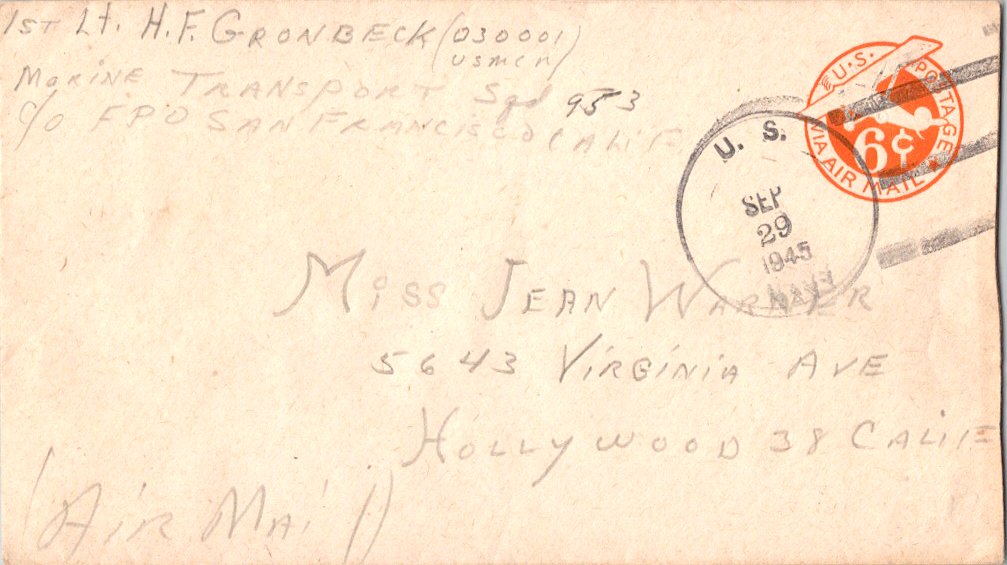 1ST Lt. H. F. GRONBECK (030001)
USMCR
MARINE TRANSPORT Sqd 953
C/O F.P.O SAN FRANCISCO CALIF
U.S. POSTAGE
6¢
VIA AIR MAIL
U. S.
SEP
29
1945
NAVY
MISS JEAN WARNER
5643 VIRGINIA AVE
HOLLYWOOD 38 CALIF
(AIR MAIL)